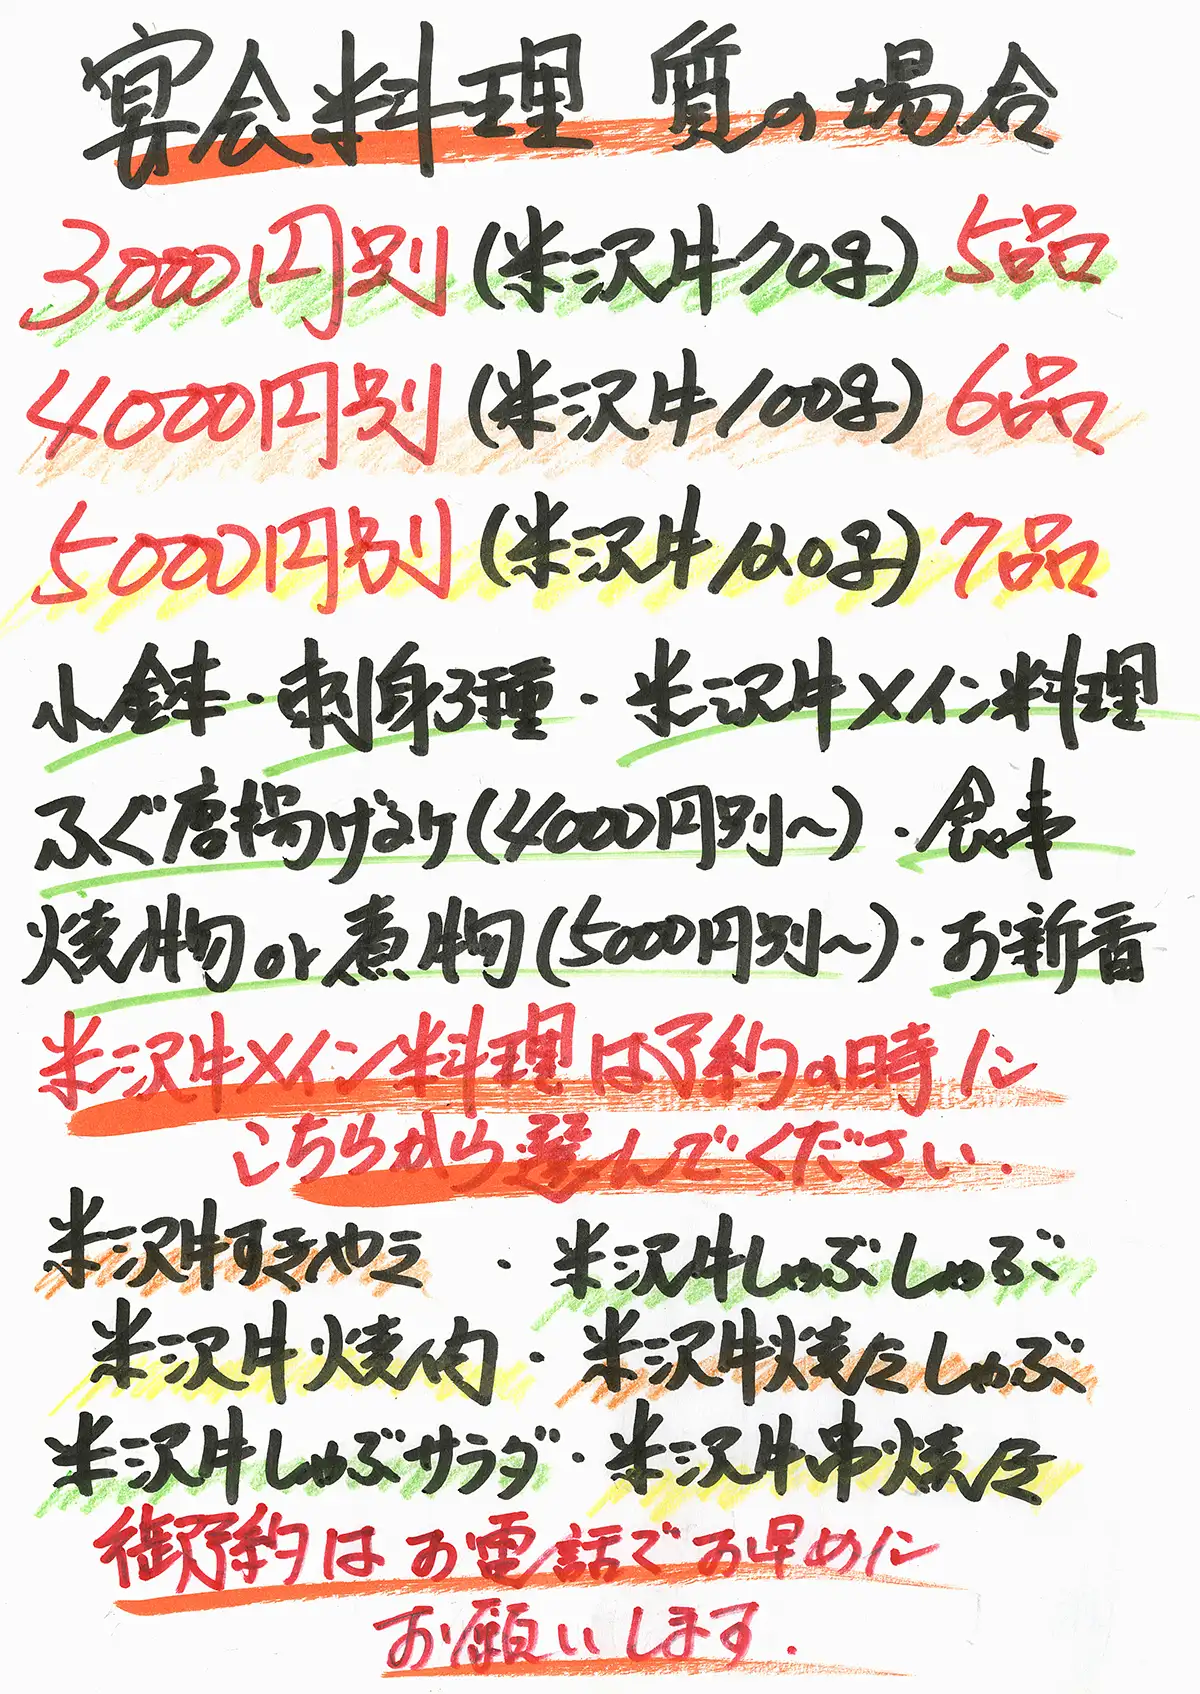 宴会料理 質の場合
3000円別(米沢牛70g) 5品
4000円別(米沢牛100g) 6品
5000円別(米沢牛120g) 7品
小鉢・刺身3種・米沢牛メイン料理
ふぐ唐揚げ(4000円別〜)・食事
焼物or煮物(5000円別〜)・お新香
米沢牛メイン料理は予約の時に
こちらから選んでください.
米沢牛すきやき ・ 米沢牛しゃぶしゃぶ
米沢牛焼肉・米沢牛焼きしゃぶ
米沢牛しゃぶサラダ・米沢牛串焼き
御予約はお電話でお早めに
お願いします.